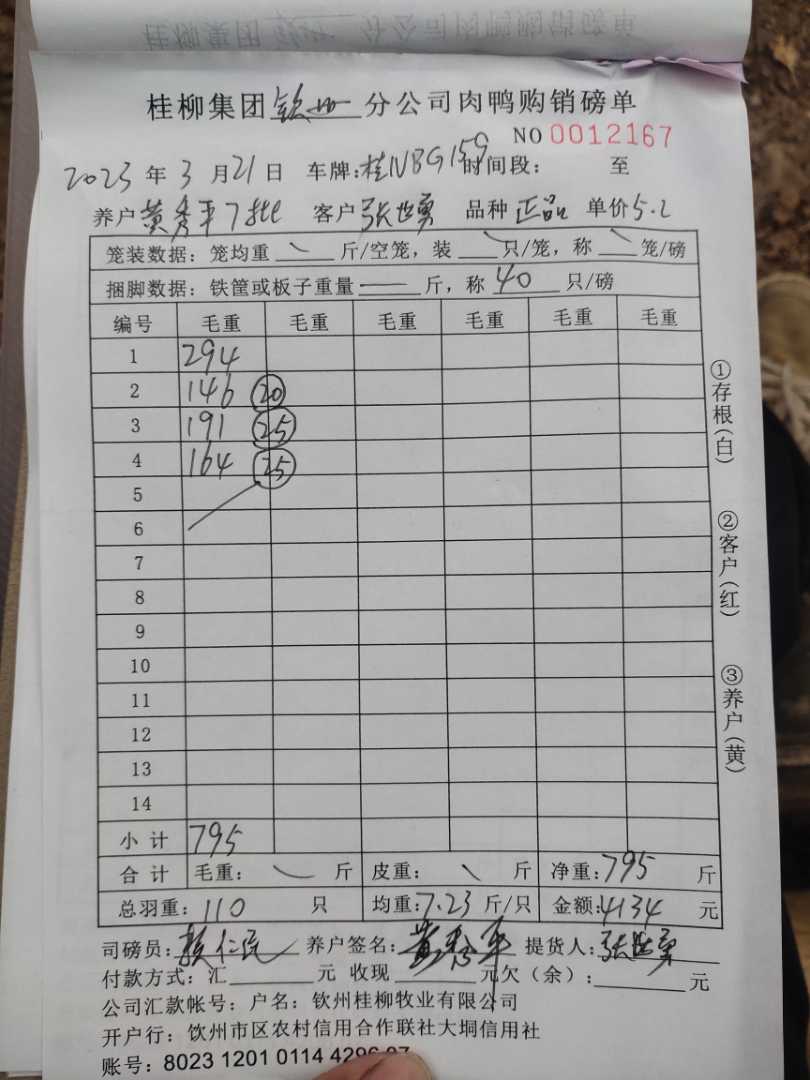 桂柳集团钦州分公司肉鸭购销磅单
NO 0012167
2023年3月21日 车牌:桂NBG159 时间段: 至
养户黄秀平7批 客户张世勇 品种正品 单价5.2
笼装数据: 笼均重 \ 斤/空笼, 装 \ 只/笼, 称 \ 笼/磅
捆脚数据: 铁筐或板子重量 — 斤, 称 40 只/磅
编号 毛重 毛重 毛重 毛重 毛重 毛重
1 294
2 146 20
3 191 25
4 164 25
5
6
7
8
9
10
11
12
13
14
小计 795
合计 毛重: \ 斤 皮重: \ 斤 净重:795 斤
总羽重: 110 只 均重:7.23 斤/只 金额:4134 元
司磅员: 仁民 养户签名:黄秀平 提货人:张世勇
付款方式: 汇 元 收现 元欠(余): 元
公司汇款帐号: 户名: 钦州桂柳牧业有限公司
开户行: 饮州市区农村信用合作联社大垌信用社
账号: 8023 1201 0114 4296
①存根(白)
②客户(红)
③养户(黄)